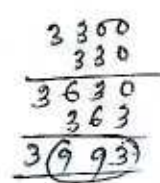 3300
330
3630
363
3993